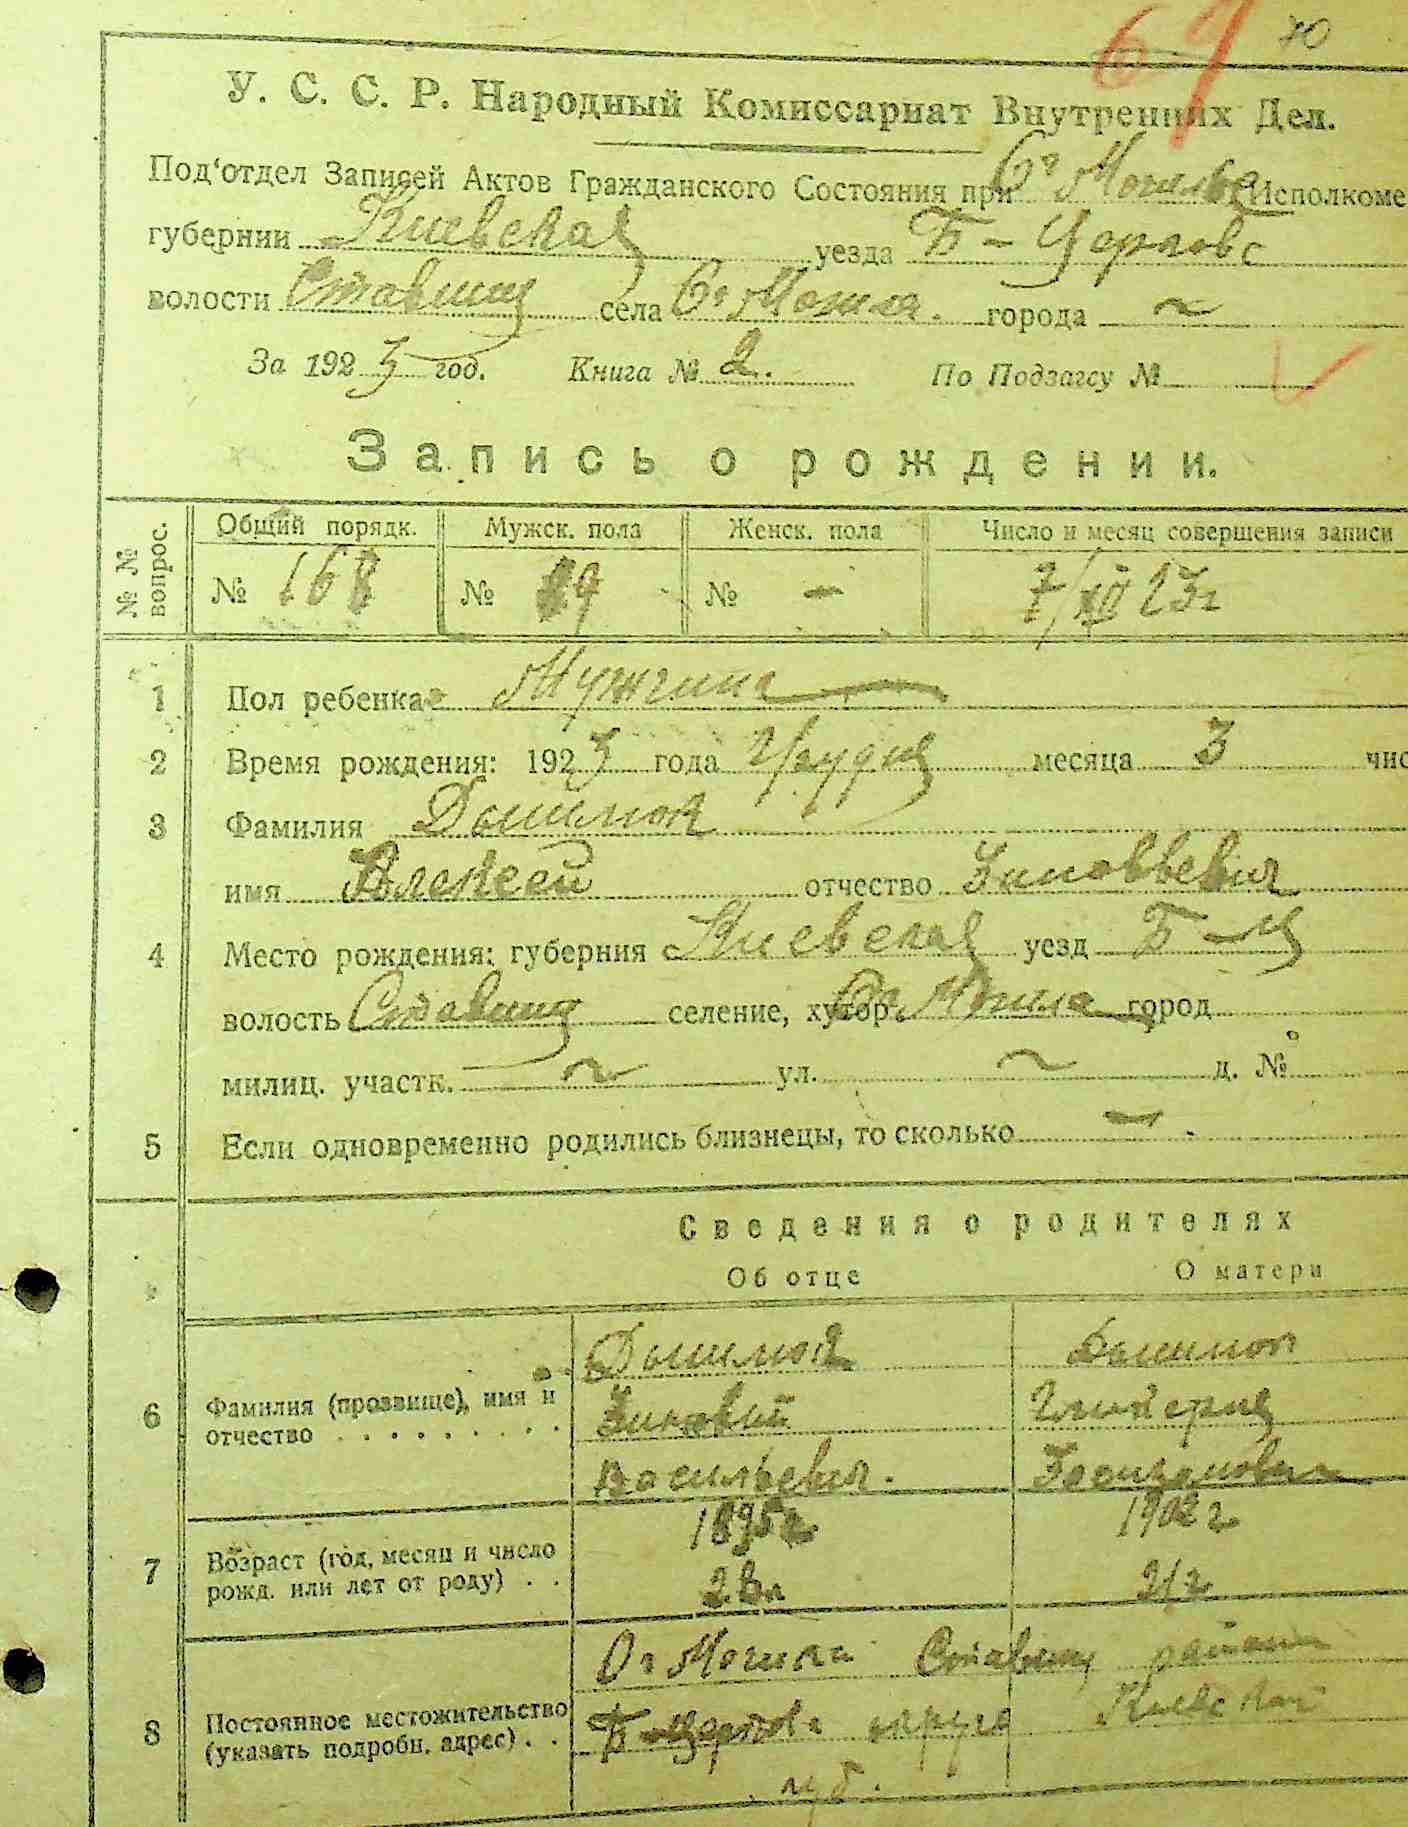 69 70
У. С. С. Р. Народный Комиссариат Внутренних Дел.
Под‘отдел Записей Актов Гражданского Состояния при Исполкоме
губернии Киевская уезда Б-Церковс
волости Ставищ села Ог Могила. города ~
За 1923 год. Книга № 2. По Подзагсу №
Запись о рождении.
№ № вопрос. Общий порядк. Мужск. пола Женск. пола Число и месяц совершения записи
№ 168 № 89 № - 7/XII 23г
1 Пол ребенка Мужчина
2 Время рождения: 1923 года Грудня месяца 3 чис
3 Фамилия Дышлюк
имя Алексей отчество Зиновьевич
4 Место рождения: губерния Киевская уезд Б-Ц
волость Ставищ селение, хутор Ог Могила город
милиц. участк. ~ ул. ~ д. №
5 Если одновременно родились близнецы, то сколько -
Сведения о родителях
Об отце О матери
6 Фамилия (прозвище), имя и отчество . . . . . . . . . .
Дышлюк Дышлюк
Зиновий Гликерия
Васильевич.
7 Возраст (год, месяц и число рожд. или лет от роду) . .
1895г 1902г
28л 21г
8 Постоянное местожительство (указать подробн. адрес) . .
Ог Могила Ставищ района
Б-Церков округа Киевской
губ.